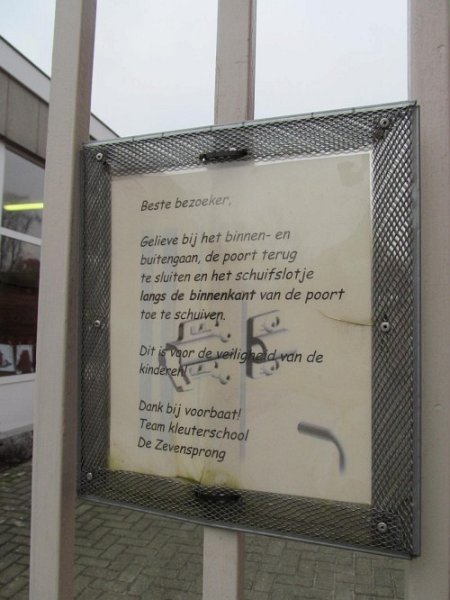 Beste bezoeker,
Gelieve bij het binnen- en
buitengaan, de poort terug
te sluiten en het schuifslotje
langs de binnenkant van de poort
toe te schuiven.
Dit is voor de veiligheid van de
kinderen!
Dank bij voorbaat!
Team kleuterschool
De Zevensprong